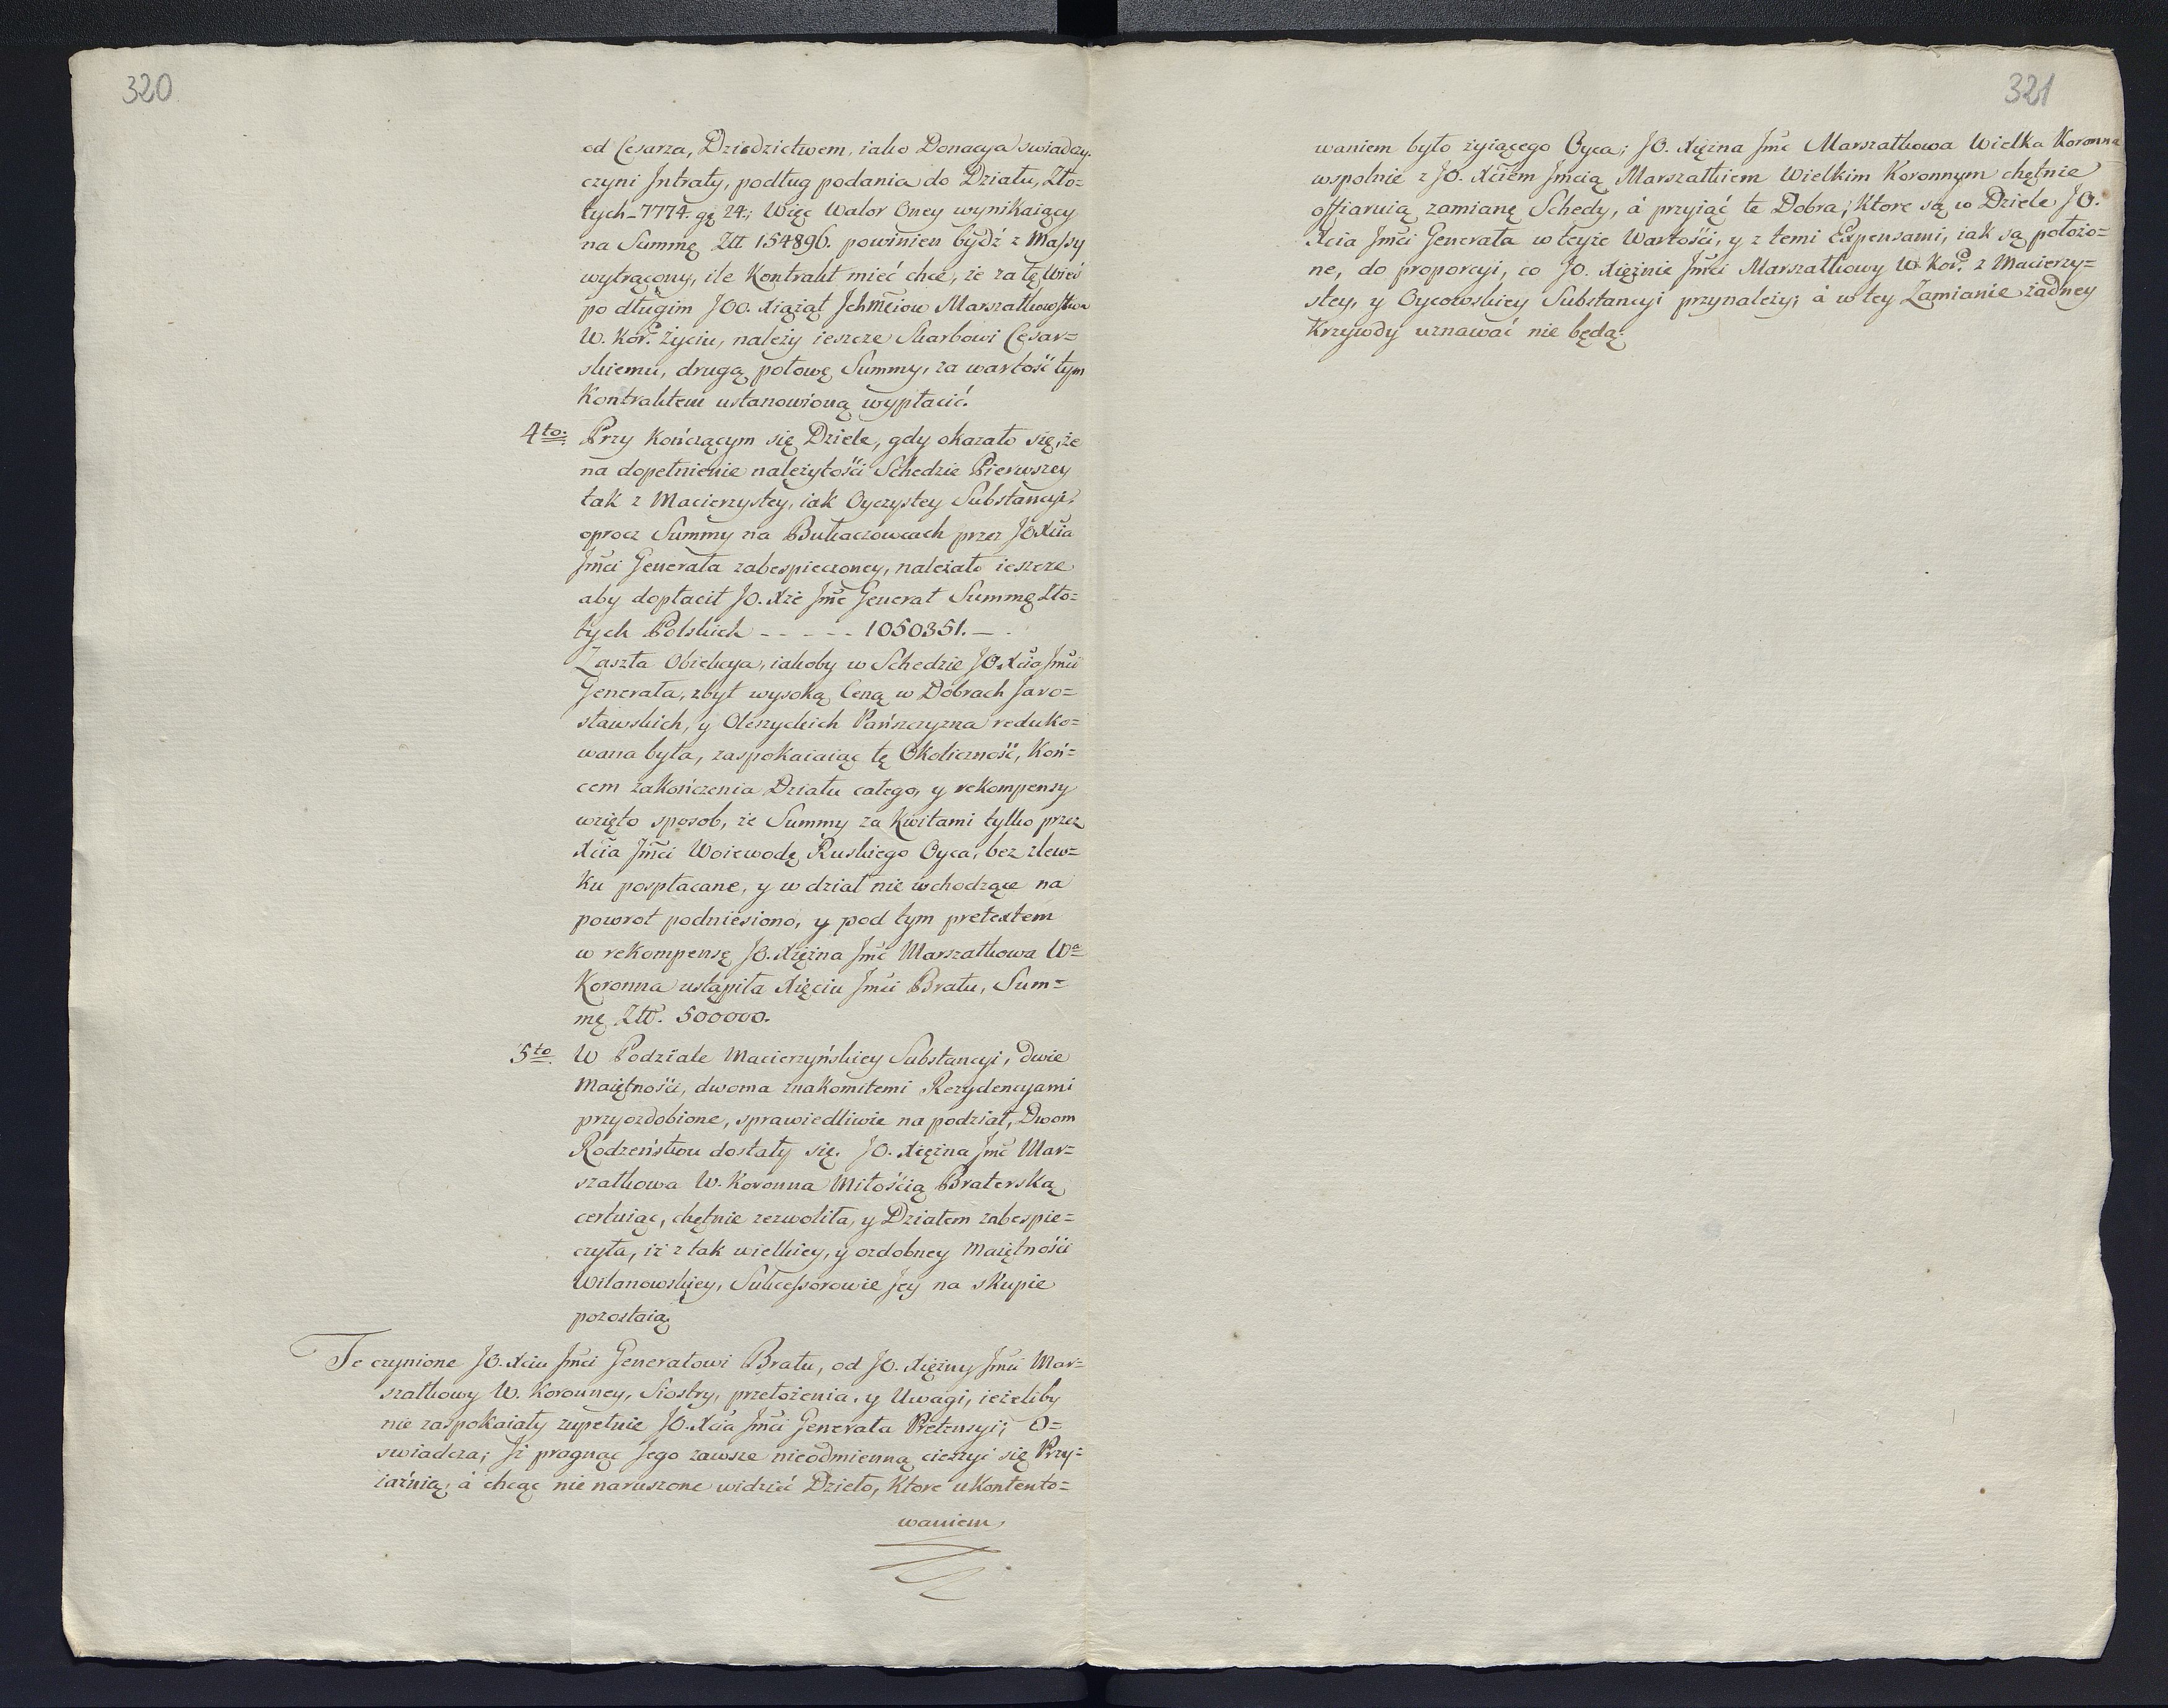 320
od Cesarza, Dziedzictwem, iako Donacya swiadczy.
czyni Jntraty, podług podania do Działu, Zło=
tych - 7774. gę 24; Więc Walor Oney wynikaiący
na Summę Złł 154896. powinien bydź z Massy
wytrącony, ile Kontrakt mieć chce, że za tę Wieś
po długim JOO. Xiążąt Jchmciow Marszałkowstwa
W. Kor. życiu, należy ieszcze Skarbowi Cesar=
skiemu, drugą połowę Summy, za wartość tym
Kontraktem ustanowioną wypłacić.
4to. Przy Kończącym się Dziele, gdy okazało się, że
na dopełnienie należytości Schedzie Pierwszey
tak z Macierzystey, iak Oyczystey Substancyi,
oprocz Summy na Bukaczowcach przez JO Xcia
Jmci Generała zabespieczoney, należało ieszcze
aby dopłacił JO. Xże Jmc Generał Summę Zło=
tych Polskich - - - - - 1050351. —
Zaszła Obiekcya, iakoby w Schedzie JO. Xcia Jmci
Generała, zbyt wysoką Ceną w Dobrach Jaro=
sławskich, y Oleszyckich Pańszczyzna reduko=
wana była, zaspokaiaiąc tę Okoliczność, Koń=
cem zakończenia Działu całego, y rekompensy
wzięto sposob, że Summy za Kwitami tylko przez
Xcia Jmci Woiewodę Ruskiego Oyca, bez zlew=
ku pospłacane, y w dział nie wchodzące na
powrot podniesiono, y pod tym pretextem
w rekompensę JO. Xiężna Jmc Marszałkowa Wa
Koronna ustąpiła Xięciu Jmci Bratu, Sum=
mę Złł. 500000.
5to. W Podziale Macierzyńskiey Substancyi, dwie
Maiętności, dwoma znakomitemi Rezydencyami
przyozdobione, sprawiedliwie na podział, Dwom
Rodzeństwu dostały się. JO. Xiężna Jmc Mar=
szałkowa W. Koronna Miłością Braterską
certuiąc, chętnie zezwoliła, y Działem zabespie=
czyła, iż z tak wielkiey, y ozdobney Maiętności
Wilanowskiey, Sukcessorowie Jey na skupie
pozostaią.
Te czynione JO. Xciu Jmci Generałowi Bratu, od JO. Xiężny Jmci Mar=
szałkowy W. Koronney, Siostry, przełożenia, y Uwagi, ieżeliby
nie zaspokaiały zupełnie JO. Xcia Jmci Generała Pretensyi; O=
swiadcza; Jż pragnąc Jego zawsze nieodmienną cieszyć się Przy=
iaźnią, á chcąc nie naruszone widzieć Dzieło, Ktore ukontento=
waniem
321
waniem było żyiącego Oyca; JO. Xiężna Jmc Marszałkowa Wielka Koronna
wspolnie z JO. Xciem Jmcią Marszałkiem Wielkim Koronnym chętnie
offiaruią zamianę Schedy, á przyiąć te Dobra, Ktore są w Dziele JO.
Xcia Jmci Generała w teyże Wartości, y z temi Expensami, iak są położo=
ne, do proporcyi, co JO. Xiężnie Jmci Marszałkowy W. Kor. z Macierzy=
stey, y Oycowskiey Substancyi przynależy; á w tey Zamianie żadney
Krzywdy uznawać nie będą.